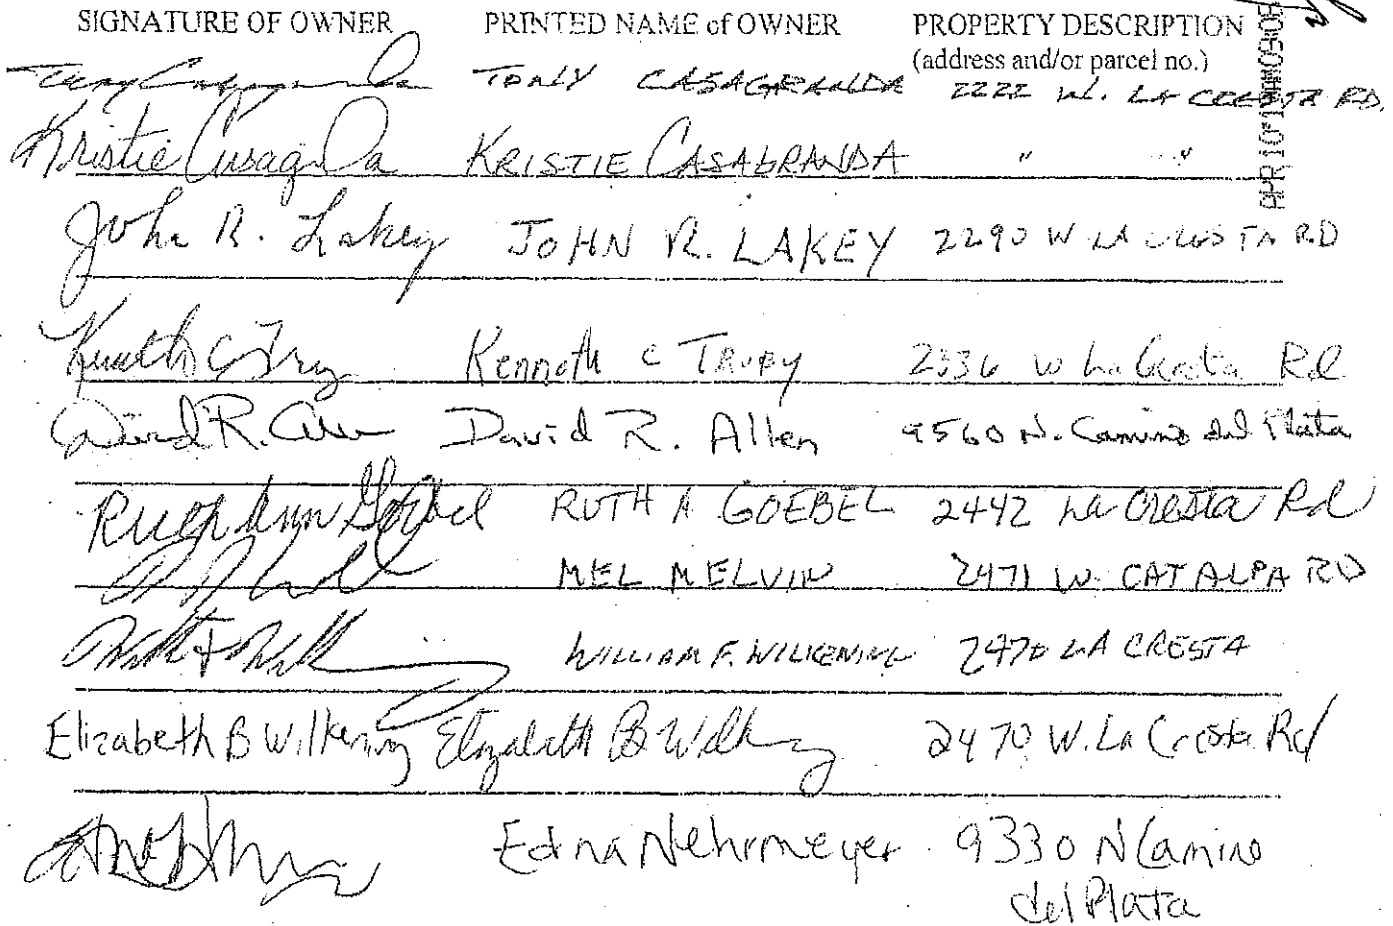 SIGNATURE OF OWNER PRINTED NAME of OWNER PROPERTY DESCRIPTION
(address and/or parcel no.)
Tony Casagranda TONY CASAGRANDA 2222 W. LA CRESTA RD.
Kristie Casagranda KRISTIE CASAGRANDA " "
John R. Lakey JOHN R. LAKEY 2290 W LA CRESTA RD
Kenneth C Kenneth C 2336 W La Cresta Rd
David R. Allen David R. Allen 9560 N. Camino del Plata
Ruth Ann Goebel RUTH A GOEBEL 2442 La Cresta Rd
MEL MELVIN 2471 W. CATALPA RD
WILLIAM F. WILKENING 2470 LA CRESTA
Elizabeth B Wilkening Elizabeth B Wilkening 2470 W. La Cresta Rd
Edna Nehrmeyer 9330 N Camino
del Plata